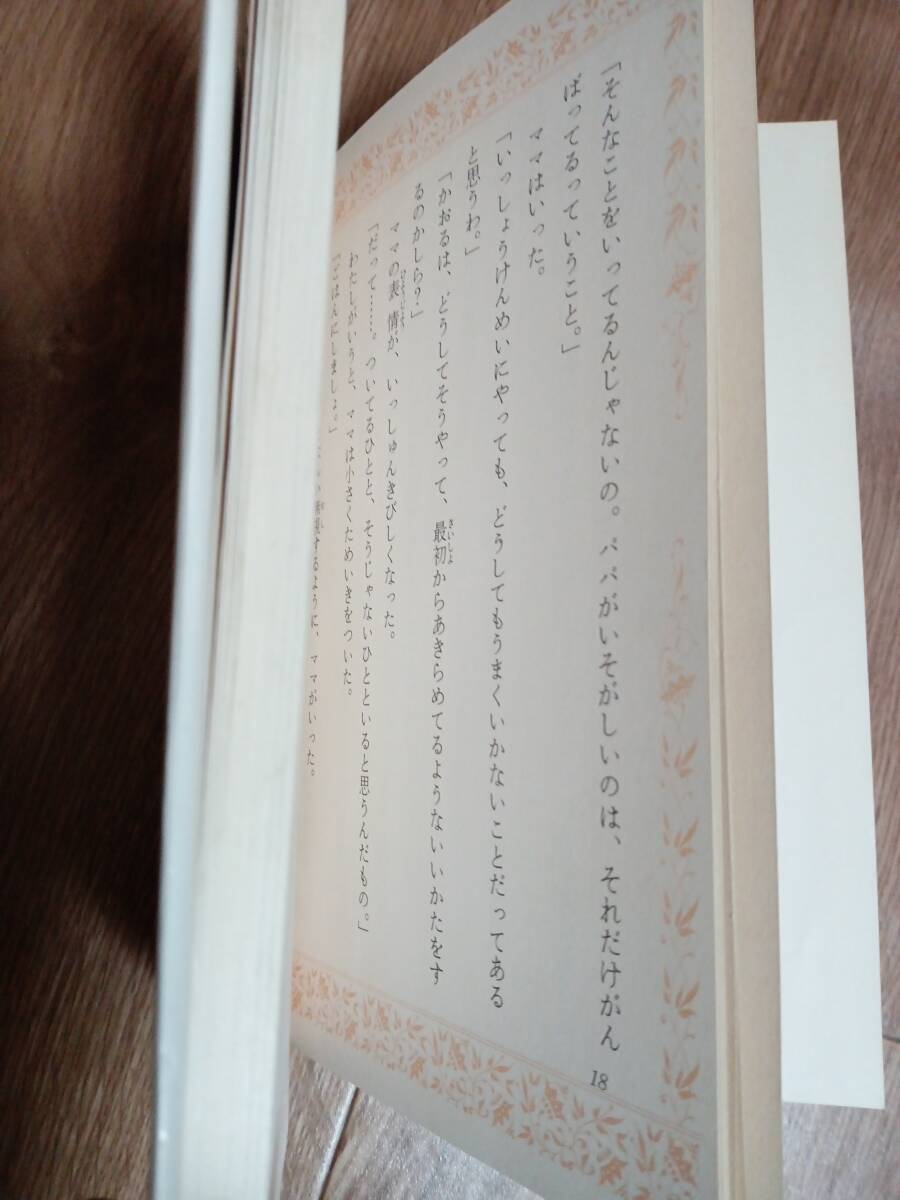 「そんなことをいってるんじゃないの。パパがいそがしいのは、それだけがん
ばってるっていうこと。」
ママはいった。
「いっしょうけんめいにやっても、どうしてもうまくいかないことだってある
と思うわ。」
「かおるは、どうしてそうやって、最初からあきらめてるようないいかたをす
るのかしら？」
ママの表情が、いっしゅんきびしくなった。
「だって……。ついてるひとと、そうじゃないひとといると思うんだもの。」
わたしがいうと、ママは小さくためいきをついた。
「ごはんにしましょ。」
するように、ママがいった。
18